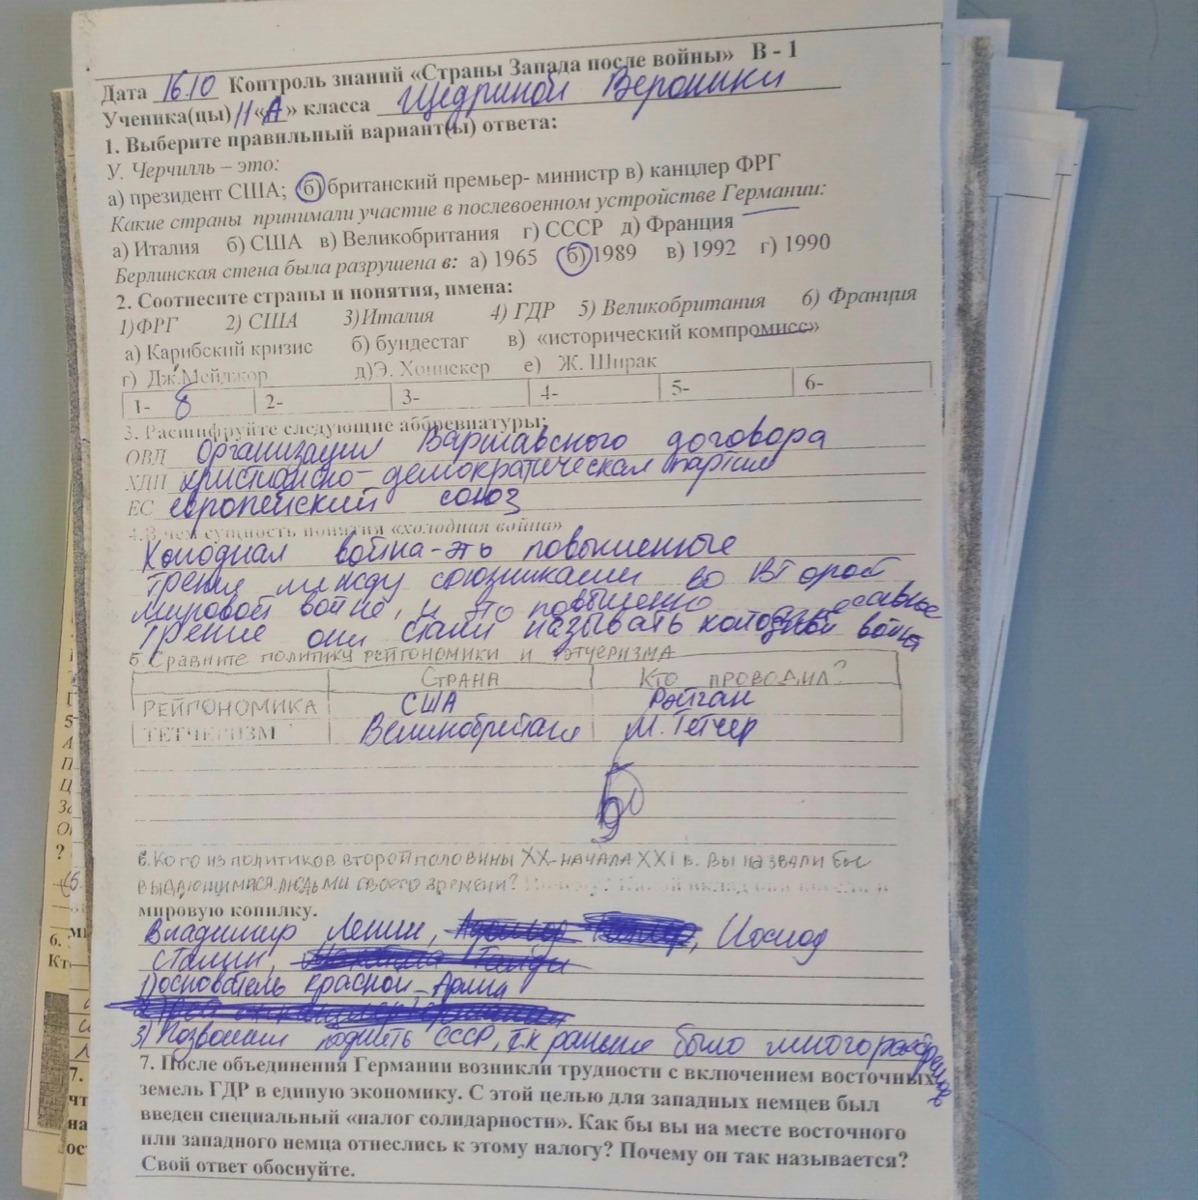 Дата 16.10 Контроль знаний «Страны Запада после войны» В - 1
Ученика(цы) 11 «А» класса Щедриной Вероники
1. Выберите правильный вариант(ы) ответа:
У. Черчилль – это:
а) президент США; б) британский премьер- министр в) канцлер ФРГ
Какие страны принимали участие в послевоенном устройстве Германии:
а) Италия б) США в) Великобритания г) СССР д) Франция
Берлинская стена была разрушена в: а) 1965 б) 1989 в) 1992 г) 1990
2. Соотнесите страны и понятия, имена:
1)ФРГ 2) США 3)Италия 4) ГДР 5) Великобритания 6) Франция
а) Карибский кризис б) бундестаг в) «исторический компромисс»
г) Дж.Мейджор д)Э. Хоннекер е) Ж. Ширак
1- б 2- 3- 4- 5- 6-
3. Расшифруйте следующие аббревиатуры:
ОВД Организации Варшавского договора
ХДП христианско-демократическая партия
ЕС европейский союз
4.В чем сущность понятия «холодная война»
Холодная война-это повышенные
трения между союзниками во Второй
мировой войне, и это повышенно
трение они стали называть холодной война
5. Сравните политику рейгономики и тэтчеризма
Страна Кто проводил?
Рейгономика США Рэйган
Тетчеризм Великобритания М. Тетчер
6. Кого из политиков второй половины XX-начала XXI в. вы назвали бы
выдающимися людьми своего времени? Почему? Какой вклад они внесли в
мировую копилку.
Владимир Ленин, Иосиф
Сталин,
1) основатель красной-Армии
3) Позволили поднять СССР, т.к раньше было много
7. После объединения Германии возникли трудности с включением восточных
земель ГДР в единую экономику. С этой целью для западных немцев был
введен специальный «налог солидарности». Как бы вы на месте восточного
или западного немца отнеслись к этому налогу? Почему он так называется?
Свой ответ обоснуйте.